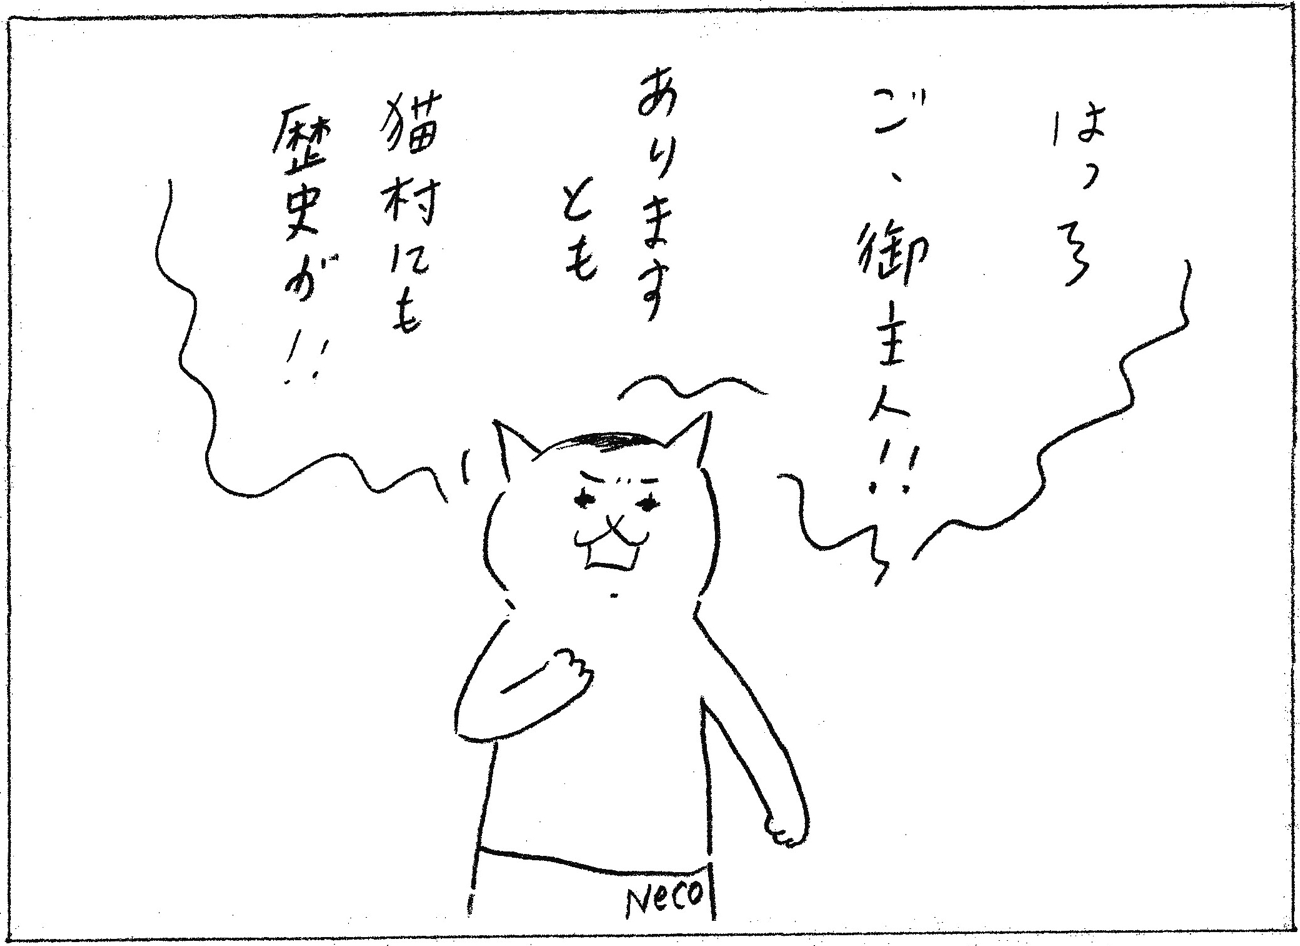 はっろ
ご、御主人!!
あります
とも
猫村にも
歴史が!!
Neco